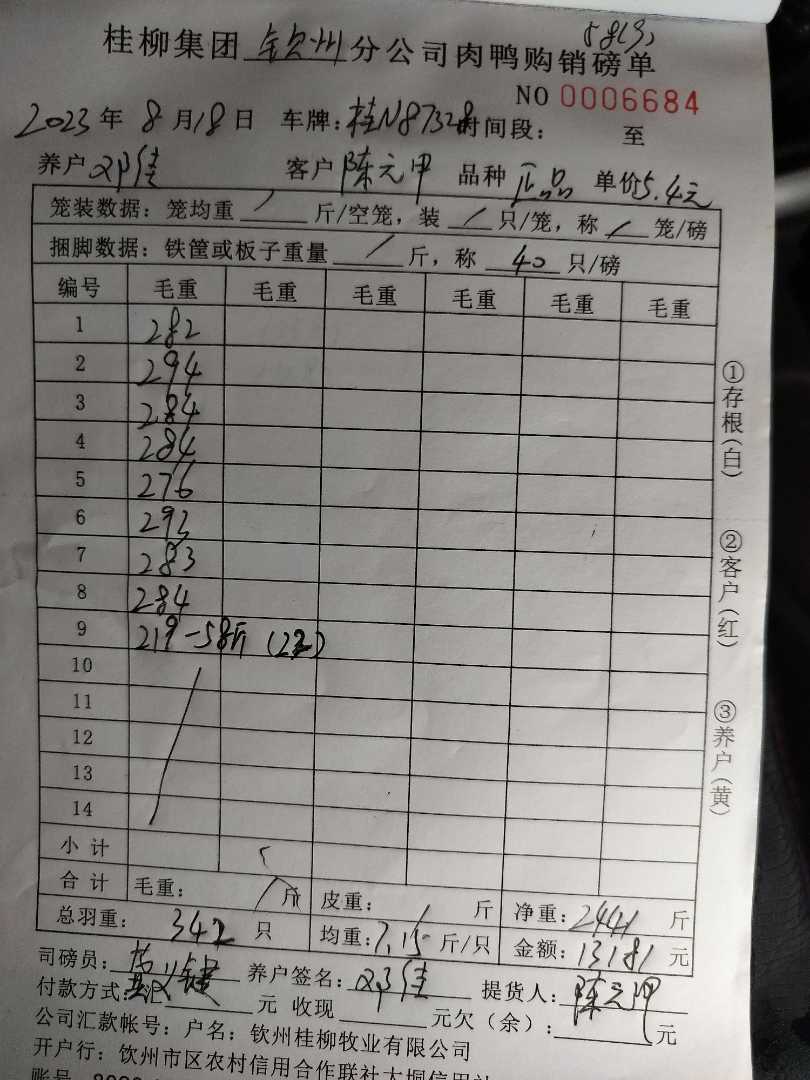 58(3)
桂柳集团钦州分公司肉鸭购销磅单
NO 0006684
2023年8月18日 车牌:桂N87328时间段: 至
养户邓佳 客户陈元甲 品种正品 单价5.4元
笼装数据:笼均重/斤/空笼,装/只/笼,称/笼/磅
捆脚数据:铁筐或板子重量/斤,称40只/磅
编号 毛重 毛重 毛重 毛重 毛重 毛重
1 282
2 294
3 284
4 284
5 276
6 293
7 283
8 284
9 219-58斤(22)
10
11
12
13
14
小计
合计 毛重: /斤 皮重: /斤 净重:2441斤
总羽重:342只 均重:7.15斤/只 金额:13181元
司磅员: 养户签名:邓佳 提货人:陈元甲
付款方式:汇 元 收现 元欠(余): 元
公司汇款帐号:户名:钦州桂柳牧业有限公司
开户行:钦州市区农村信用合作联社大垌信用社
①存根(白)
②客户(红)
③养户(黄)